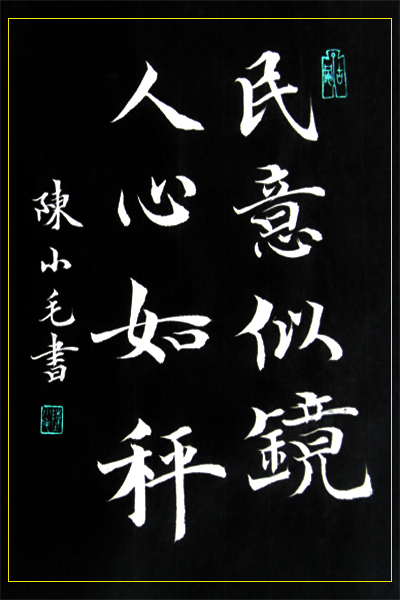 民意似鏡
人心如秤
陳小毛書